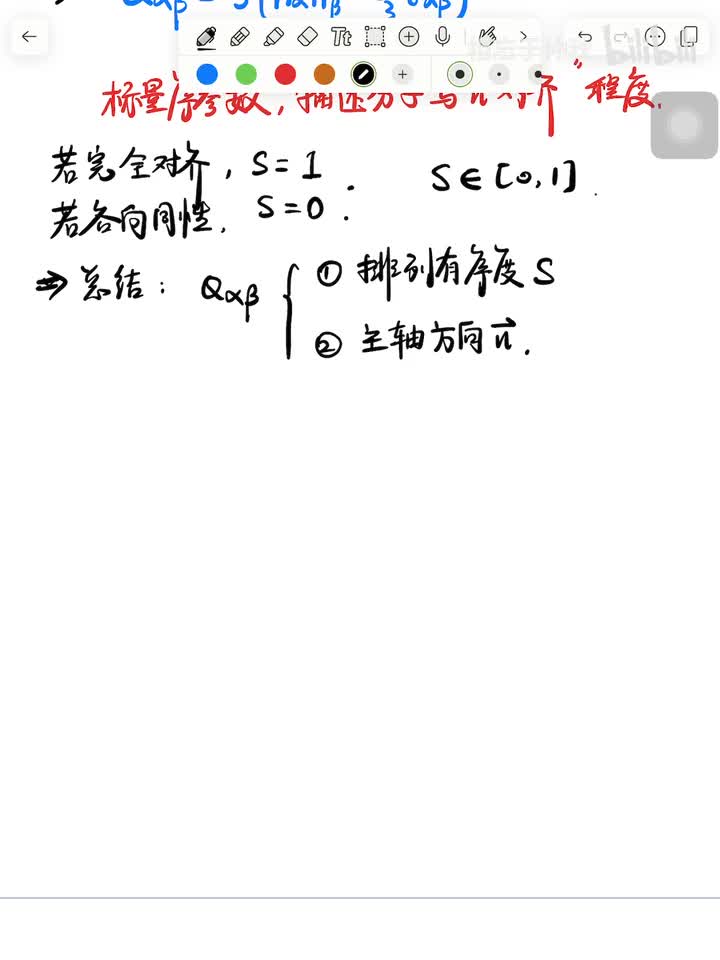 Qαβ = S(nαnβ - 1/3 δαβ)
Tt
bilibili
标量序参数, 描述分子与 n "对齐" 程度.
若完全对齐, S=1
S∈[0,1].
若各向同性, S=0.
⇒ 总结: Qαβ { ① 排列有序度 S
② 主轴方向 n⃗.